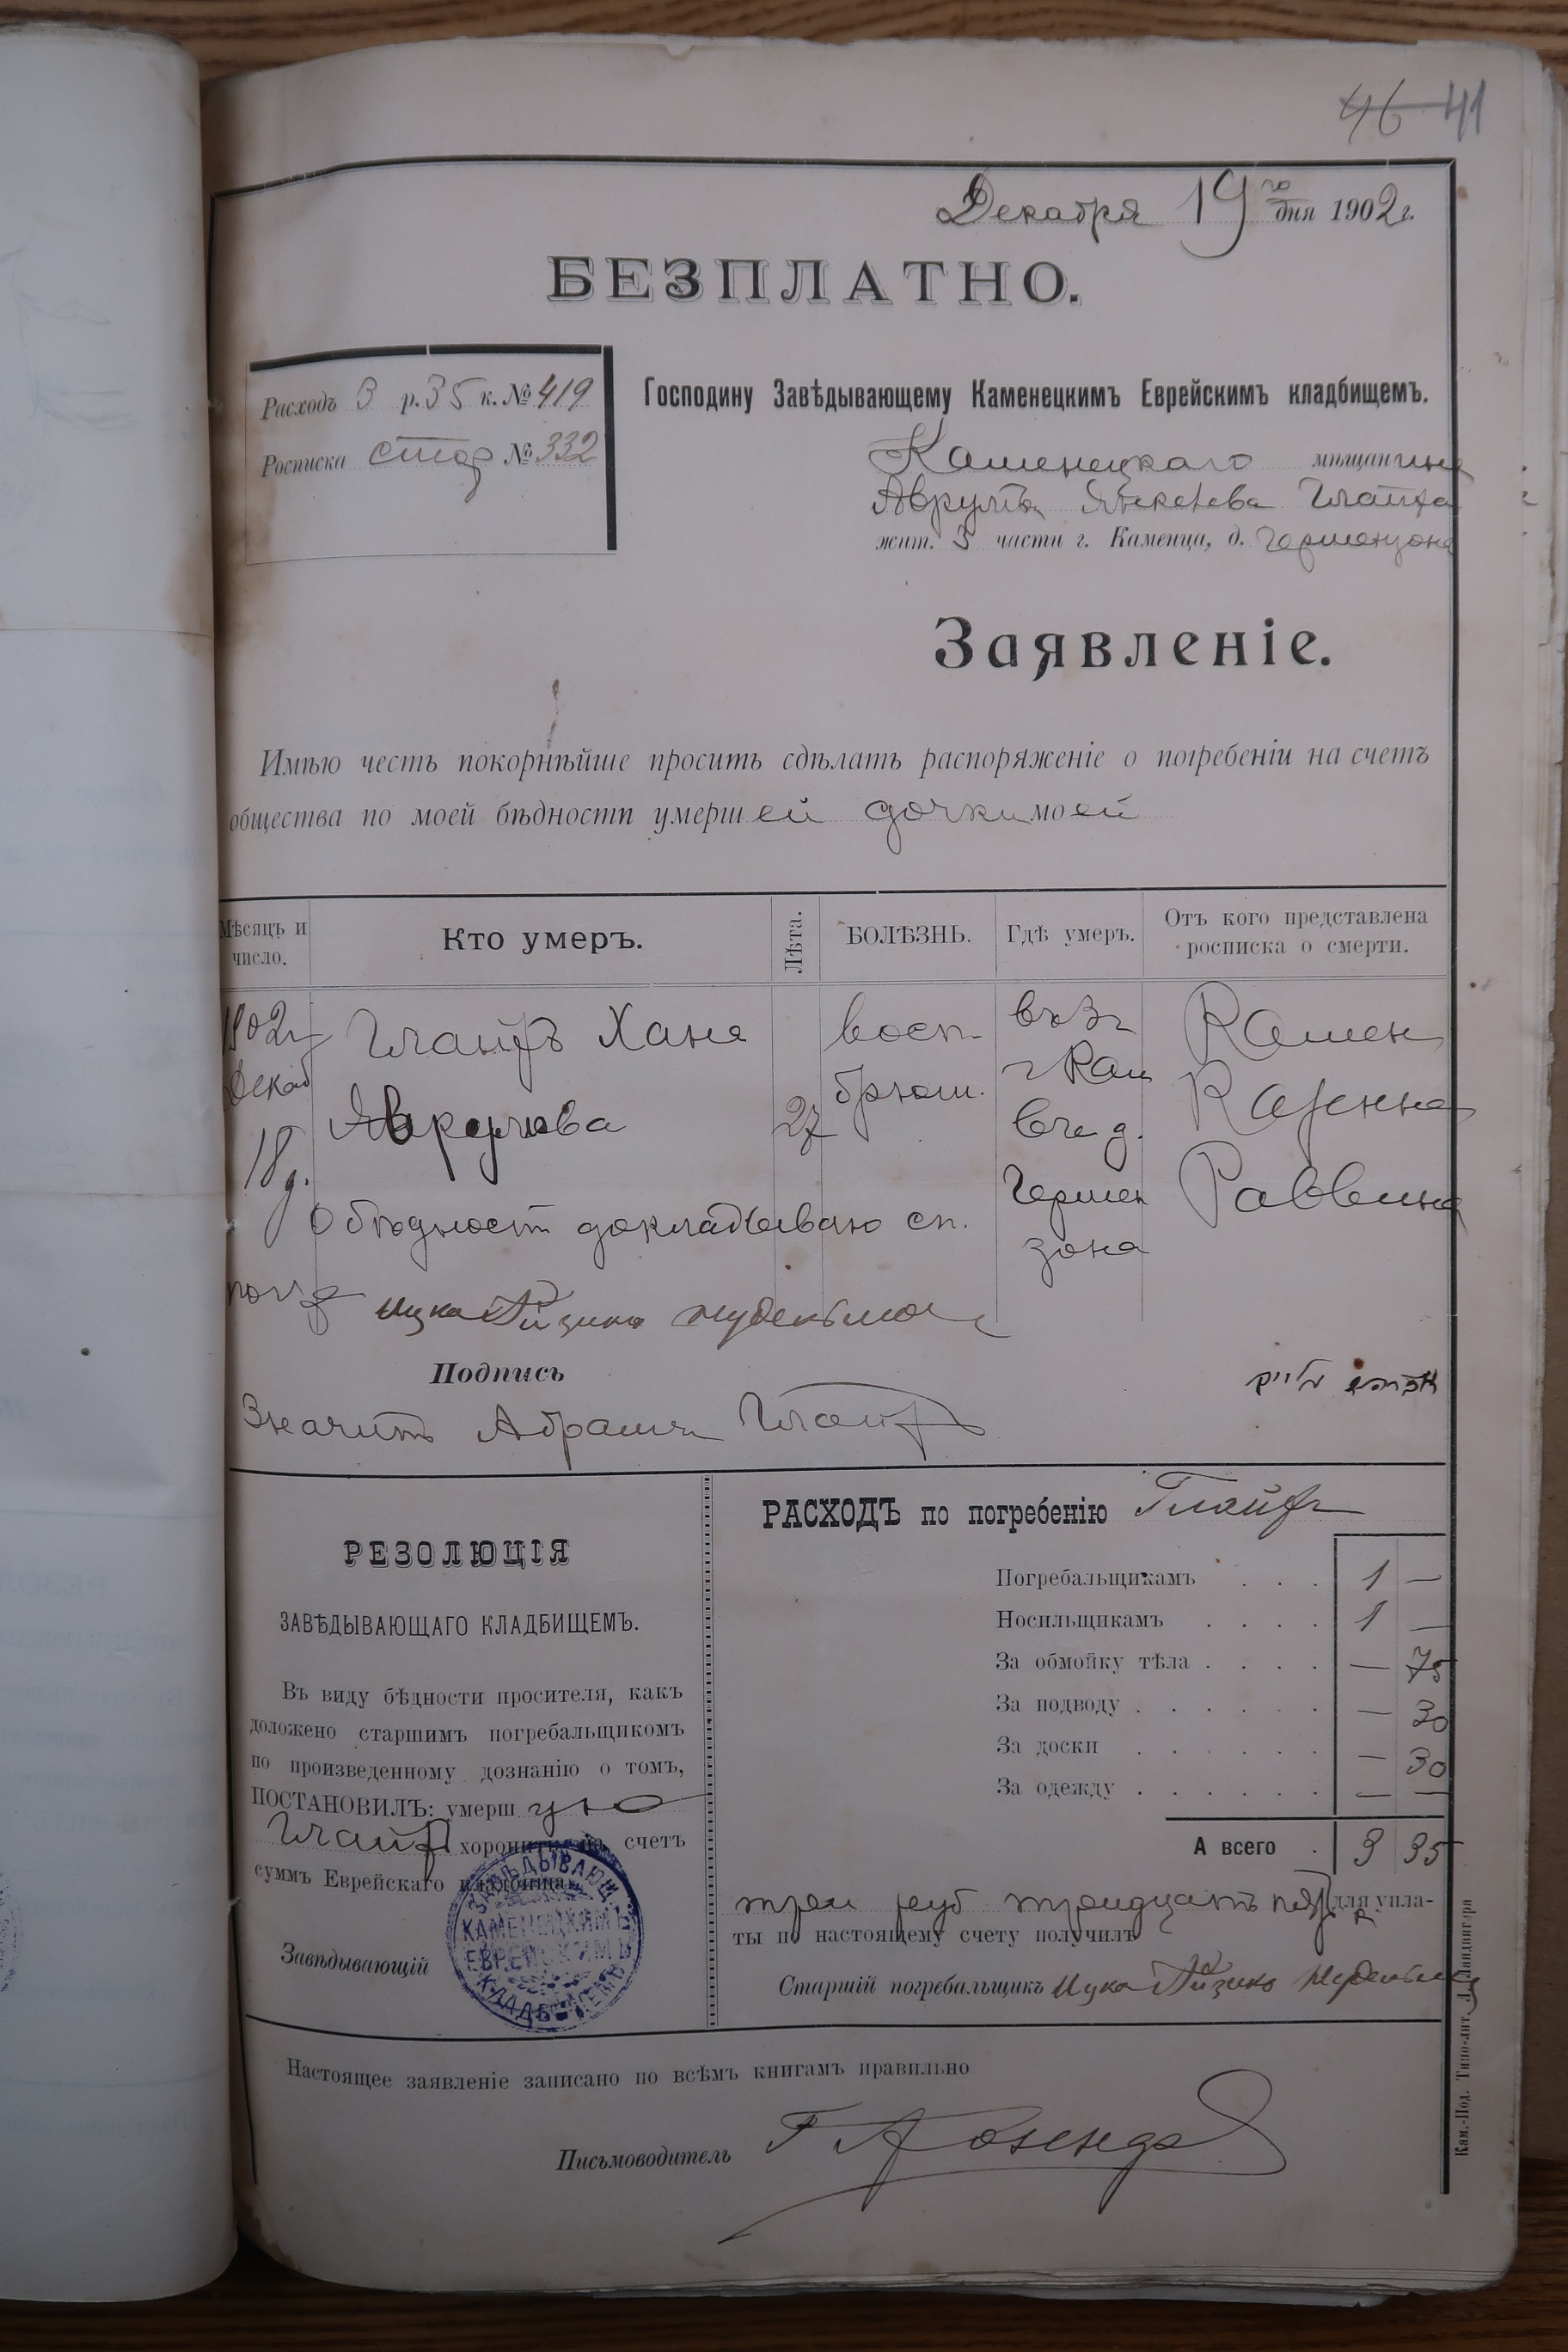 46 41
Декабря 19 го дня 1902 г.
БЕЗПЛАТНО.
Расходъ 3 р. 35 к. № 419
Росписка стар № 332
Господину Завѣдывающему Каменецкимъ Еврейскимъ кладбищемъ.
Каменецкаго мѣщанина
Аврумъ Янкелева Глайха
жит. 3 части г. Каменца, д. Германзона
Заявленіе.
Имѣю честь покорнѣйше просить сдѣлать распоряженіе о погребеніи на счетъ
общества по моей бѣдности умершей дочки моей
Мѣсяцъ и число.
Кто умеръ.
Лѣта.
БОЛѢЗНЬ.
Гдѣ умеръ.
Отъ кого представлена росписка о смерти.
1902 г
Декаб
18 д.
Хана
Аврумова
27
восп.
брюш.
въ 3 г
г Кам
въ д.
Герман
зона
Камен
Казенна
Раввина
О бѣдност докладываю ст.
погр
Подпись
Значитъ Абрамъ
РЕЗОЛЮЦІЯ
ЗАВѢДЫВАЮЩАГО КЛАДБИЩЕМЪ.
Въ виду бѣдности просителя, какъ
доложено старшимъ погребальщикомъ
по произведенному дознанію о томъ,
ПОСТАНОВИЛЪ: умершую
хоронить на счетъ
суммъ Еврейскаго кладбища.
Завѣдывающій
ЗАВѢДЫВАЮЩ.
КАМЕНЕЦКИМЪ
ЕВРЕЙСКИМЪ
КЛАДБИЩЕМЪ
РАСХОДЪ по погребенію
Погребальщикамъ . . . 1 —
Носильщикамъ . . . . 1 —
За обмойку тѣла . . . . — 75
За подводу . . . . . . — 30
За доски . . . . . . — 30
За одежду . . . . . . — —
А всего . 3 35
три руб тридцать пять к для упла-
ты по настоящему счету получилъ
Старшій погребальщикъ
Настоящее заявленіе записано по всѣмъ книгамъ правильно
Письмоводитель
Кам.-Под. Типо-лит. Л. Ландвигера